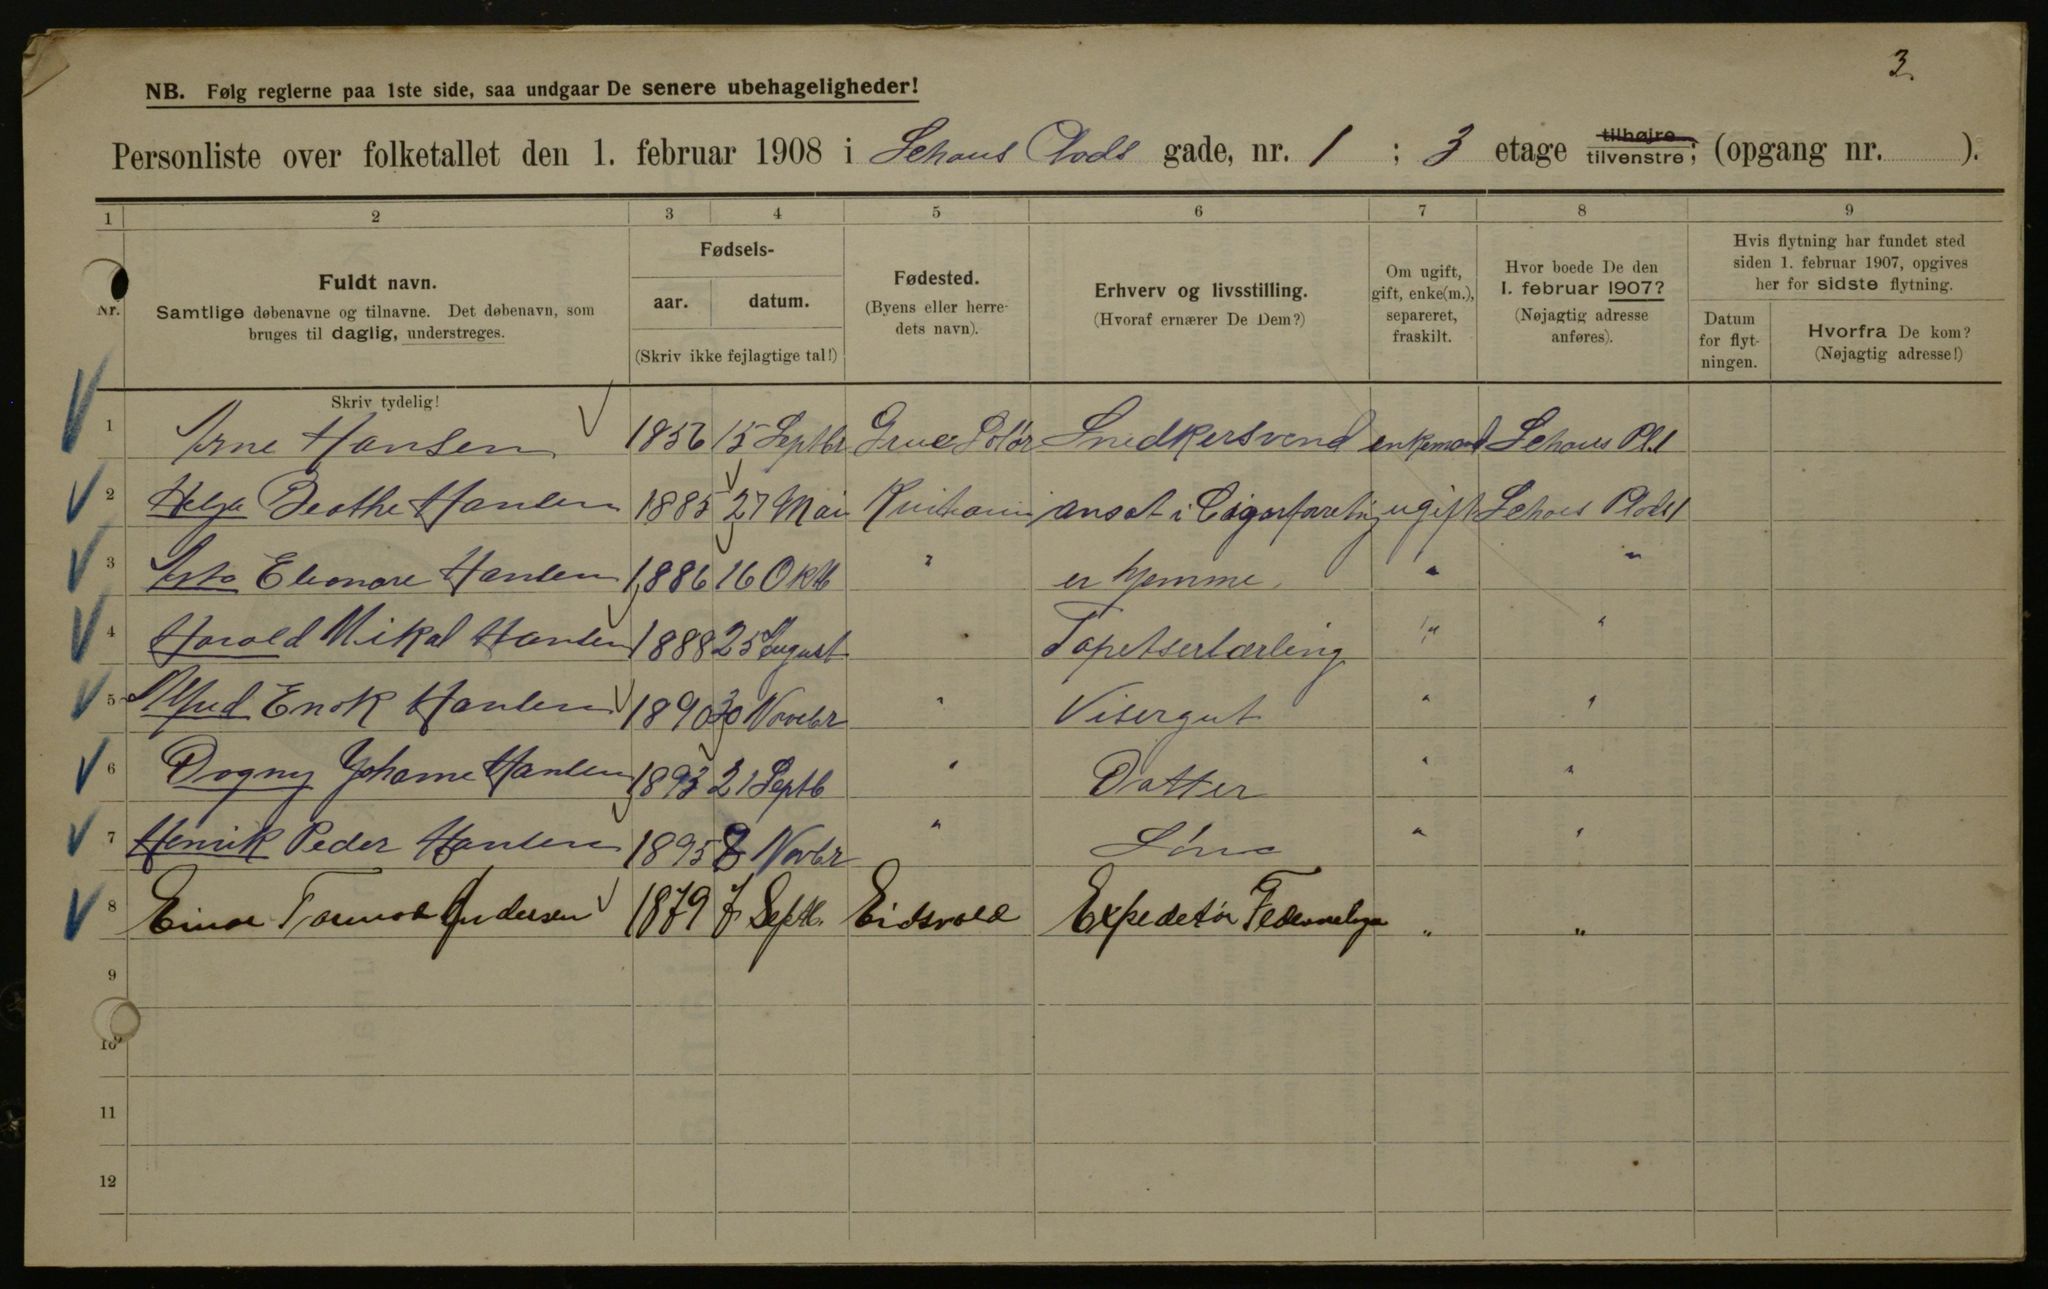 3.
NB. Følg reglerne paa 1ste side, saa undgaar De senere ubehageligheder!
Personliste over folketallet den 1. februar 1908 i Schous Plads gade, nr. 1 ; 3 etage tilhøjre tilvenstre; (opgang nr. ).
1 2 3 4 5 6 7 8 9
Nr.
Fuldt navn.
Samtlige døbenavne og tilnavne. Det døbenavn, som
bruges til daglig, understreges.
Fødsels-
aar. datum.
(Skriv ikke fejlagtige tal!)
Fødested.
(Byens eller herre-
dets navn).
Erhverv og livsstilling.
(Hvoraf ernærer De Dem?)
Om ugift,
gift, enke(m.),
separeret,
fraskilt.
Hvor boede De den
1. februar 1907?
(Nøjagtig adresse
anføres).
Hvis flytning har fundet sted
siden 1. februar 1907, opgives
her for sidste flytning.
Datum
for flyt-
ningen.
Hvorfra De kom?
(Nøjagtig adresse!)
Skriv tydelig!
1 Arne Hansen 1856 15 Septbr Grue Solør Snedkersvend enkemand Schous Pl. 1
2 Helga Beathe Hansen 1885 27 Mai ansat i ugift Schous Plads 1
3 Asta Eleonore Hansen 1886 16 Oktb " er hjemme " "
4 Harald Mikal Hansen 1888 25 August " Tapetserlærling " "
5 Alfred Enok Hansen 1890 30 Novebr " Visergut " "
6 Dagny Johanne Hansen 1893 21 Septb " Datter " "
7 Henrik Peder Hansen 1895 Novbr " Sønn " "
8 Einar Andersen 1879 7 Septb. Eidsvold Expeditør " "
9
10
11
12